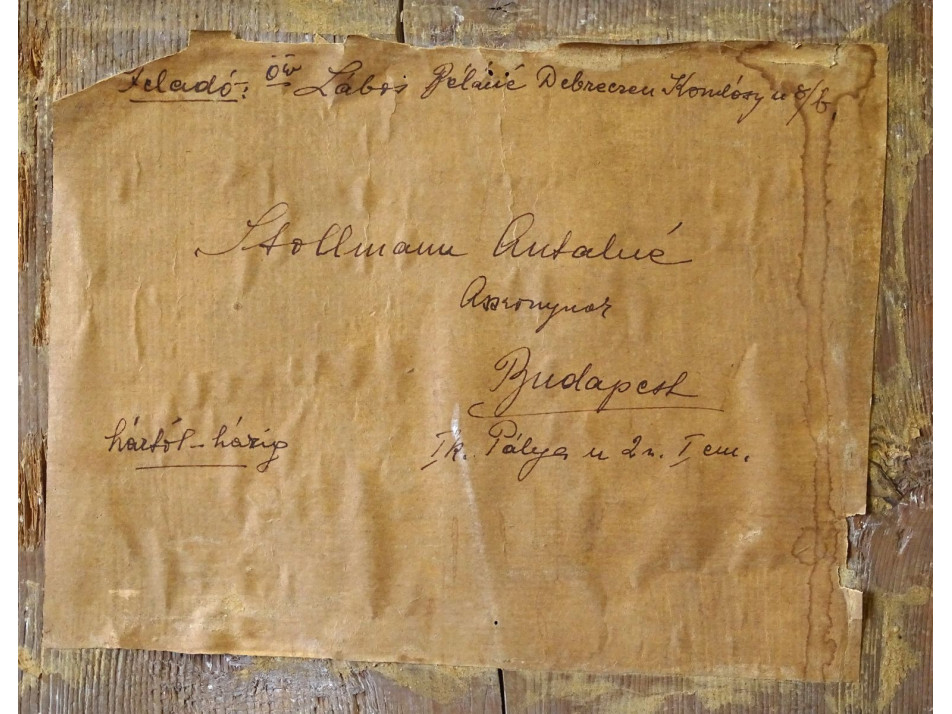 Feladó: öw Lábos Béláné Debreczen Komlóssy u 8/b.
Stollmann Antalné
Asszonynak
Budapest
háztól-házig
I k. Pálya u 2 sz. I em.